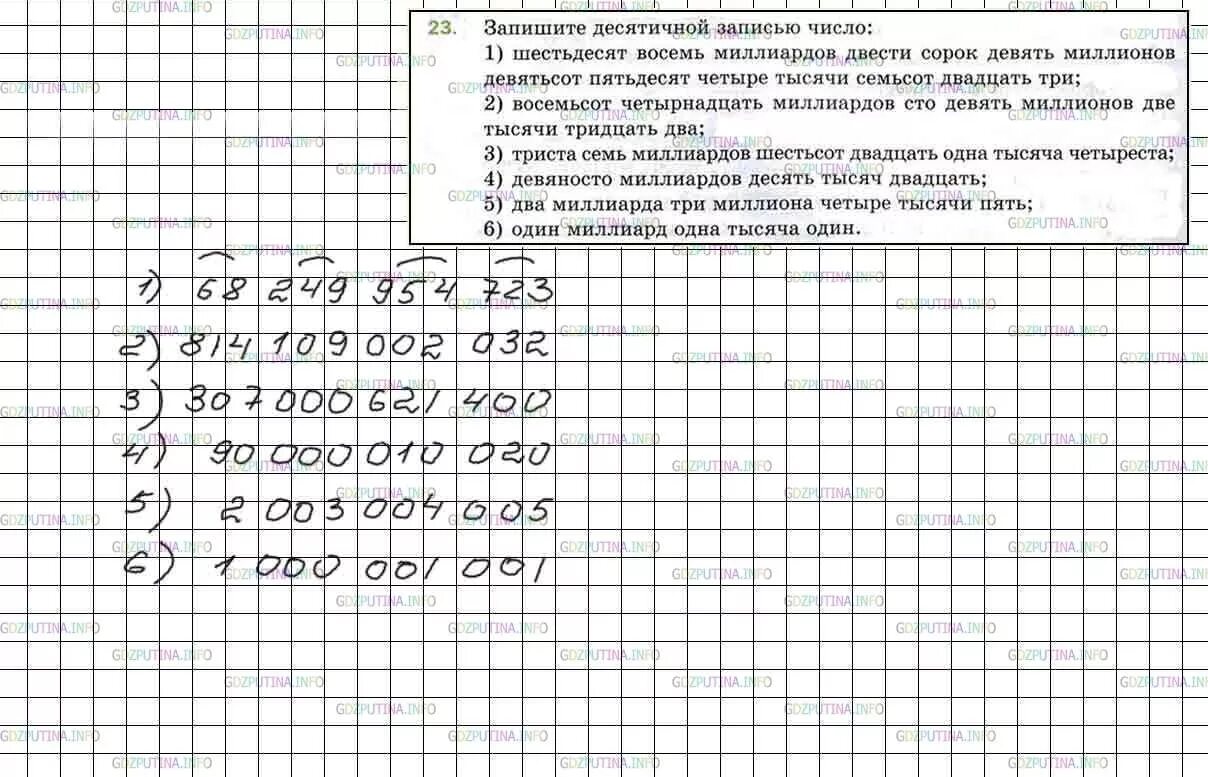 23. Запишите десятичной записью число:
1) шестьдесят восемь миллиардов двести сорок девять миллионов
девятьсот пятьдесят четыре тысячи семьсот двадцать три;
2) восемьсот четырнадцать миллиардов сто девять миллионов две
тысячи тридцать два;
3) триста семь миллиардов шестьсот двадцать одна тысяча четыреста;
4) девяносто миллиардов десять тысяч двадцать;
5) два миллиарда три миллиона четыре тысячи пять;
6) один миллиард одна тысяча один.
1) 68 249 954 723
2) 814 109 002 032
3) 307 000 621 400
4) 90 000 010 020
5) 2 003 004 005
6) 1 000 001 001
GDZPUTINA.INFO